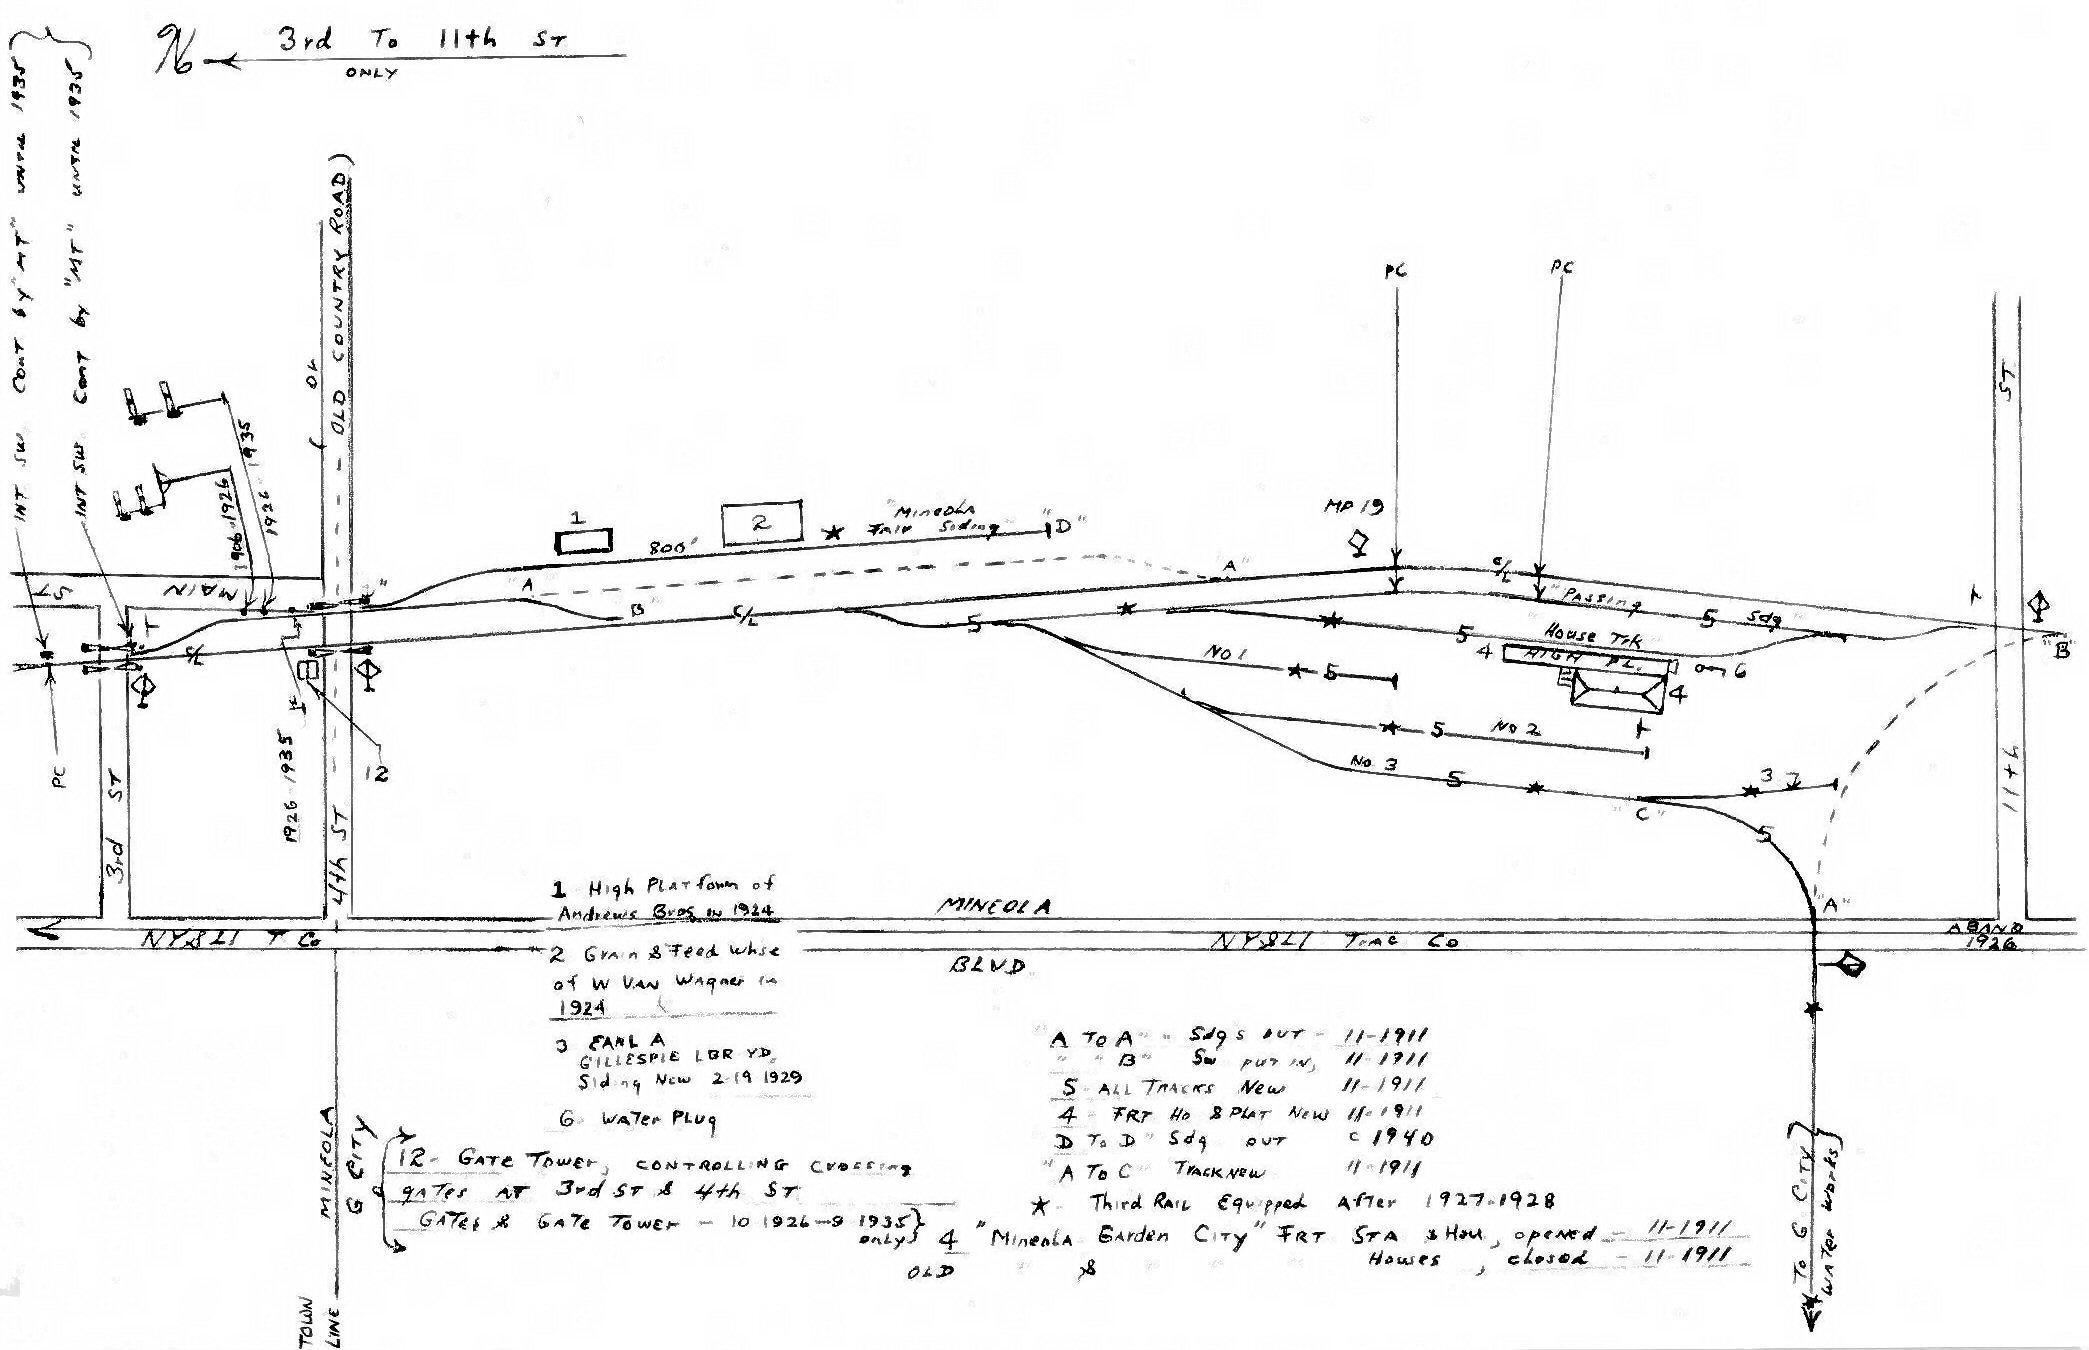 N
3rd To 11th ST
ONLY
INT SW Cont by "MT" UNTIL 1935
INT SW Cont by "MT" UNTIL 1935
( OLD COUNTRY ROAD)
OR
1926 - 1935
1906-1926
MAIN
ST
T
PC
3rd ST
C/L
1926 1935
12
4th ST
1
2
800'
"Mineola
Fair Siding"
"D"
"A
A"
B"
C/L
5
MP 19
PC
PC
C/L
"Passing Sdg"
5
House Trk
5
4
HIGH PL.
6
4
T
T
"B"
ST
11th
No 1
5
5
No 2
No 3
5
3
"C"
5
"A"
MINEOLA
BLVD
NY&LI T Co
NY&LI Trac Co
ABAND
1926
1 High Platform of
Andrews Bros in 1924
2 Grain & Feed Whse
of W Van Wagner in
1924
3 EARL A
GILLESPIE LBR YD.
Siding New 2-19 1929
6- Water Plug
12- GATE TOWER, CONTROLLING CROSSING
gates AT 3rd ST & 4th ST
GATES & GATE TOWER - 10 1926-9 1935}
only
"A To A" " Sdgs OUT - 11-1911
" " B" Sw put in, 11-1911
5- ALL TRACKS New 11-1911
4 - FRT Ho & PLAT New 11-1911
D To D" Sdg OUT c 1940
"A To C" TRACK NEW 11-1911
★- Third Rail Equipped After 1927-1928
4 "Mineola Garden City" FRT STA & Hou, opened - 11-1911
OLD " & " " Houses, closed - 11-1911
MINEOLA
G CITY
TOWN
LINE
To G CITY
WATER WORKS